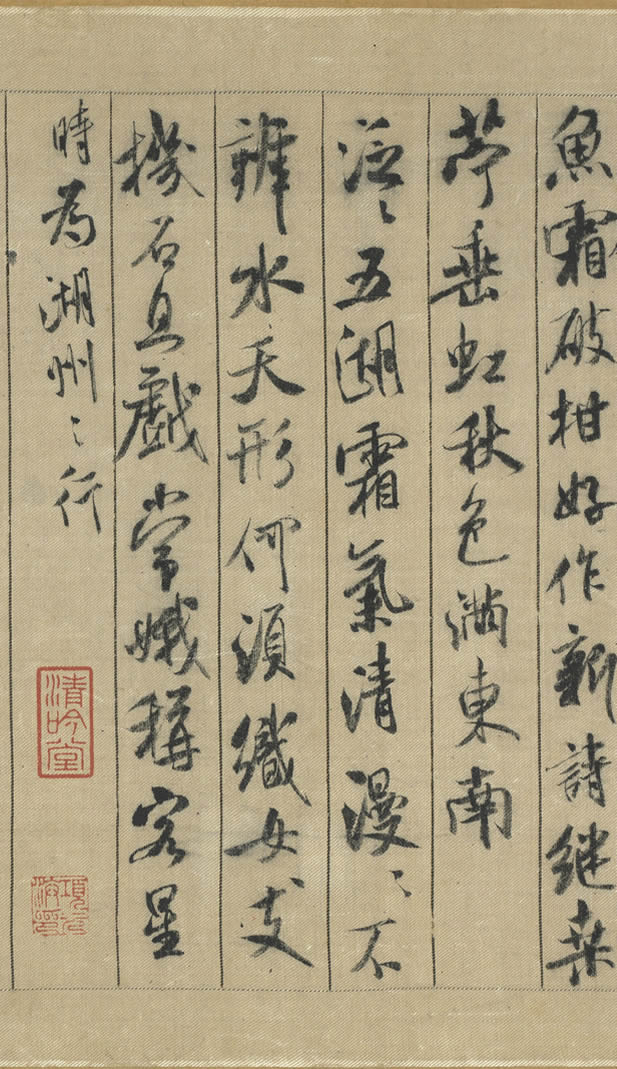 魚霜破柑好作新詩繼桑
苧垂虹秋色滿東南
泛〻五湖霜氣清漫〻不
辨水天形何須織女支
機石且戲常娥稱客星
時為湖州〻行
清吟堂
項元汴印